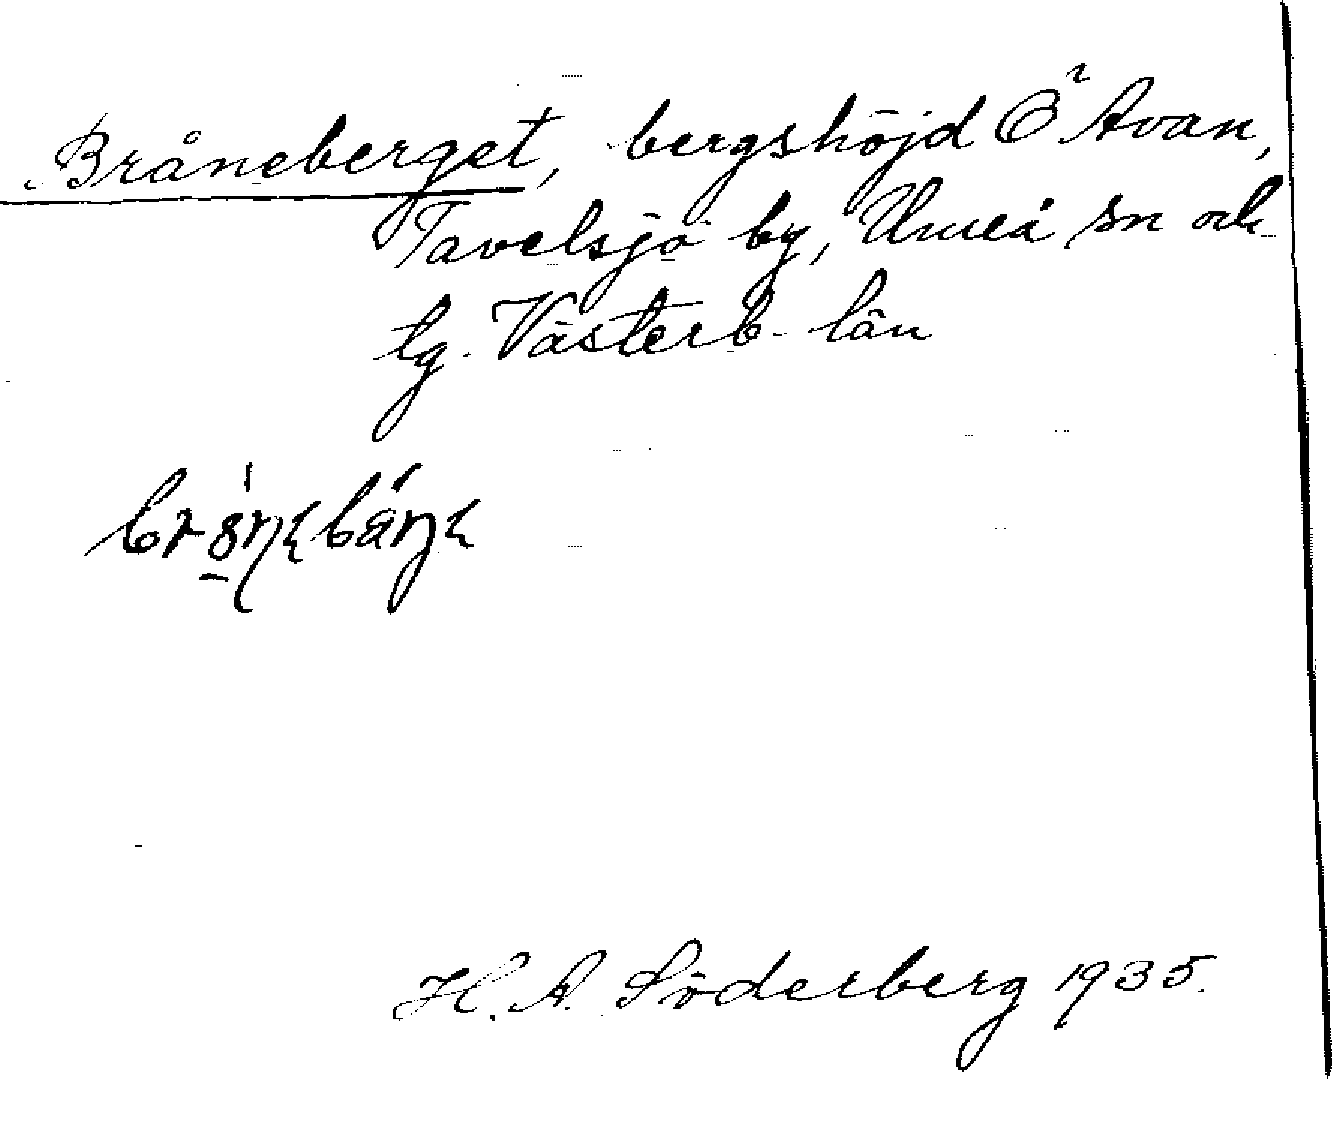 Bråneberget, bergshöjd Ö Avan,
Tavelsjö by, Umeå sn och
tg. Västerb. län
H. A. Söderberg 1935.